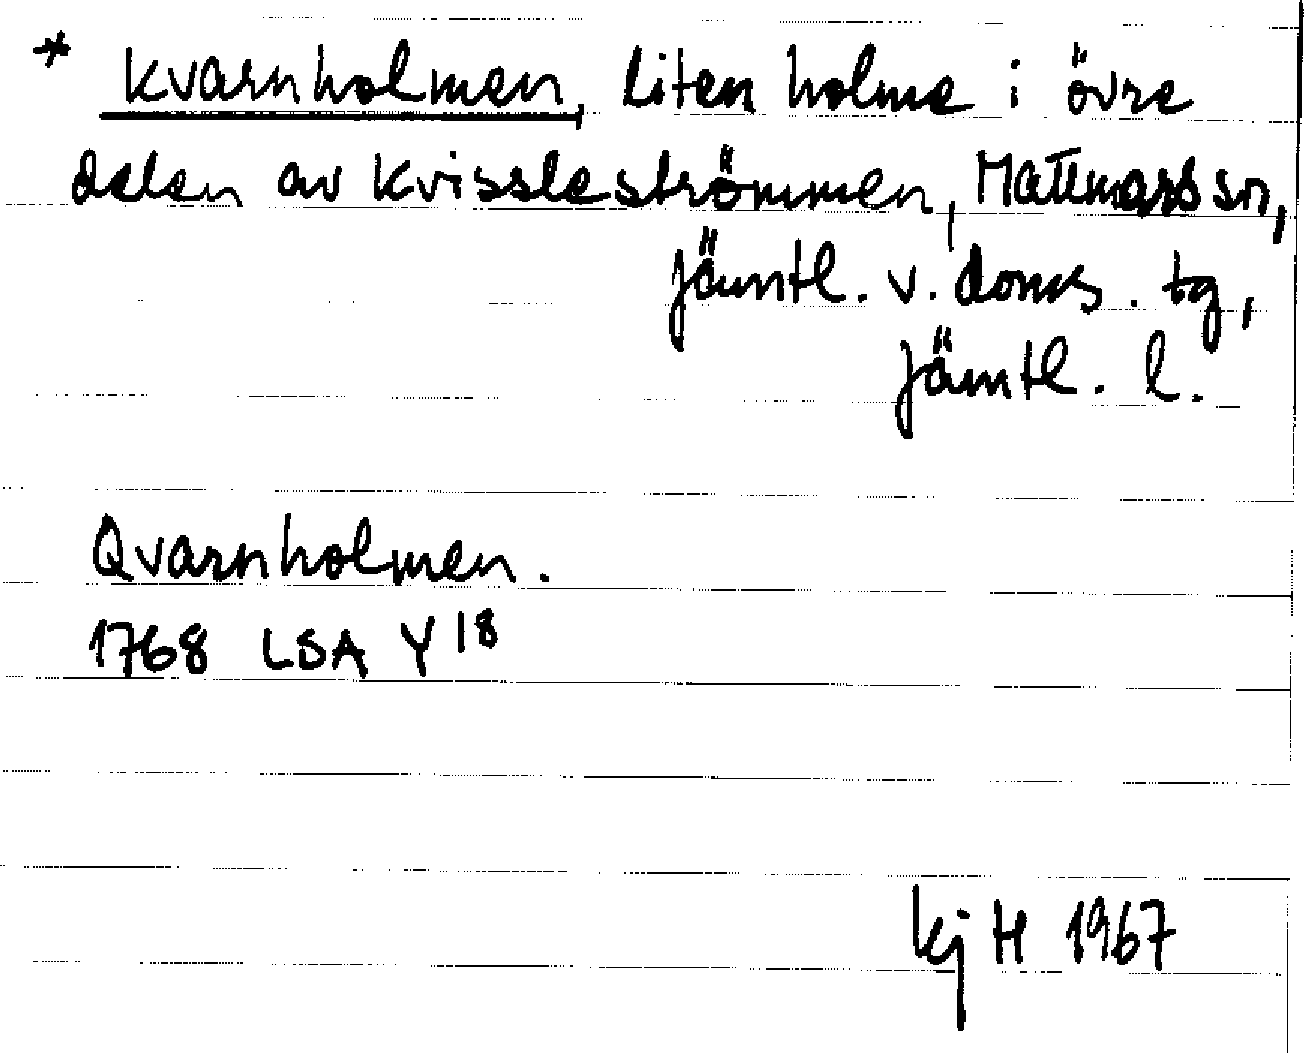 * Kvarnholmen, liten holme i övre
delen av Kvissleströmmen, Mattmars sn,
Jämtl. v. doms. tg,
Jämtl. l.
Qvarnholmen.
1768 LSA Y18
kj H 1967